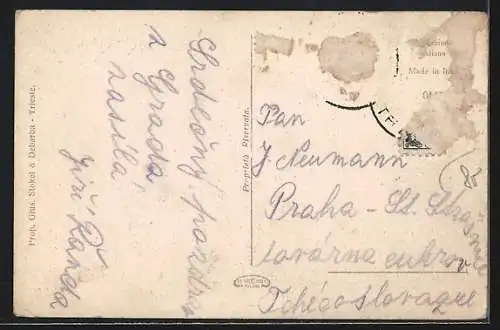 Srdečný pozdrav
z Grada
zasílá
Jiří Řanda
Prop. Gius. Stokel & Debarba - Trieste.
Proprietà Riservata.
Made in
Pan
J. Neumann
Praha - St. Straš
továrna cukrov
Tchécoslovaquie